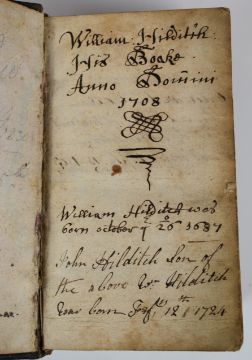 William Hilditch
His Booke
Anno Domini
1708
William Hilditch was
born october ye 26 1687
John Hilditch son of
the above Wm Hilditch
was born 12th 1724